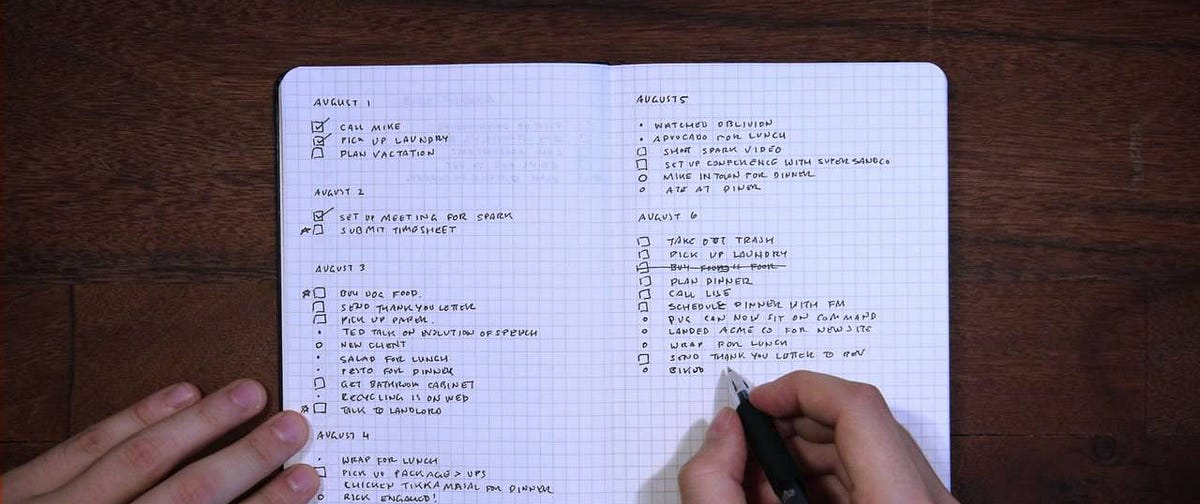 AUGUST 1
CALL MIKE
PICK UP LAUNDRY
PLAN VACTATION
AUGUST 2
SET UP MEETING FOR SPARK
SUBMIT TIMESHEET
AUGUST 3
BUY DOG FOOD.
SEND THANK YOU LETTER
PICK UP PAPER.
TED TALK ON EVOLUTION OF SPEECH
NEW CLIENT
SALAD FOR LUNCH
PESTO FOR DINNER
GET BATHROOM CABINET
RECYCLING IS ON WED
TALK TO LANDLORD
AUGUST 4
WRAP FOR LUNCH
PICK UP PACKAGE > UPS
CHICKEN TIKKA MASAL FOR DINNER
RICK ENGAGED!
AUGUST 5
WATCHED OBLIVION
ADVOCADO FOR LUNCH
SHOOT SPARK VIDEO
SET UP CONFERENCE WITH SUPER SANDCO
MIKE IN TOWN FOR DINNER
ATE AT DINER
AUGUST 6
TAKE OUT TRASH
PICK UP LAUNDRY
BUY
PLAN DINNER
CALL LISE
SCHEDULE DINNER WITH FM
PUG CAN NOW SIT ON COMMAND
LANDED ACME CO FOR NEW SITE
WRAP FOR LUNCH
SEND THANK YOU LETTER TO